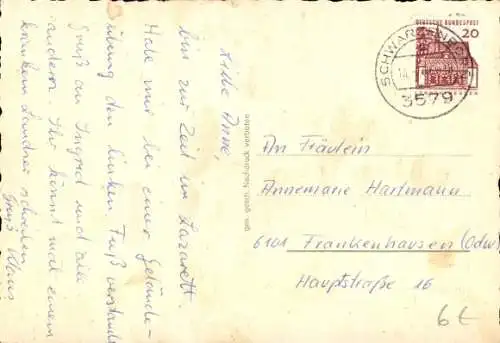 Liebe Anne,
bin zur Zeit im Lazarett.
Habe mir bei einer Gelände-
übung den linken Fuß verstaucht
Gruß an Ingrid und alle
anderen. Ihr könnt mal einem
kranken Landser schreiben
Gruß Klaus
DEUTSCHE BUNDESPOST
20
SCHWARZENBORN
3579
An Fräulein
Annemarie Hartmann
6101 Frankenhausen (Odw)
Hauptstraße 16
6€